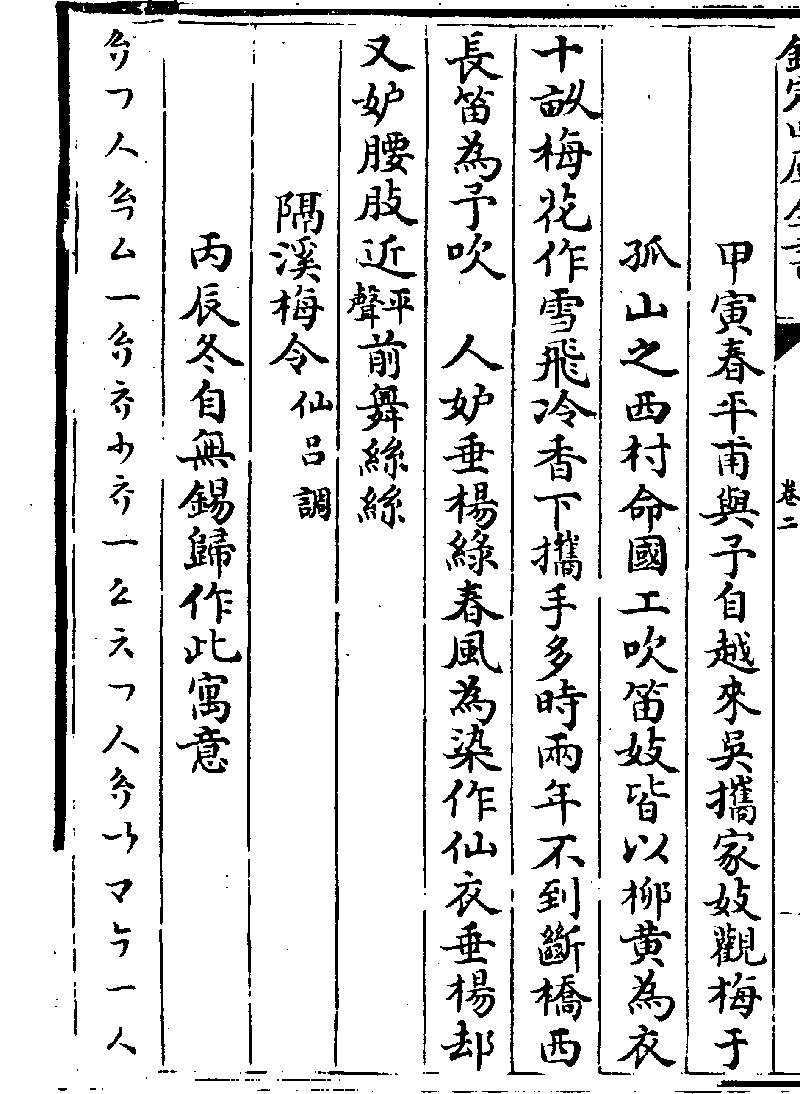 欽定四庫全書
卷二
甲寅春平甫與予自越來吳攜家妓觀梅于
孤山之西村命國工吹笛妓皆以柳黄為衣
十畝梅花作雪飛冷香下攜手多時兩年不到斷橋西
長笛為予吹　人妒垂楊綠春風為染作仙衣垂楊却
又妒腰肢近平聲前舞絲絲
隔溪梅令仙吕調
丙辰冬自無錫歸作此寓意